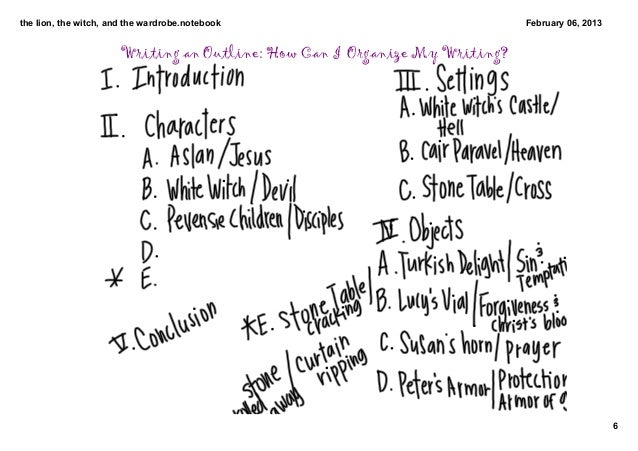 the lion, the witch, and the wardrobe.notebook
February 06, 2013
Writing an Outline: How Can I Organize My Writing?
I. Introduction
II. Characters
A. Aslan/Jesus
B. White Witch/Devil
C. Pevensie Children/Disciples
D.
* E.
V. Conclusion
III. Settings
A. White Witch's Castle/
Hell
B. Cair Paravel/Heaven
C. Stone Table/Cross
IV. Objects
A. Turkish Delight/Sin &
Temptati
B. Lucy's Vial/Forgiveness &
Christ's bloo
C. Susan's horn/prayer
D. Peter's Armor/Protection
Armor of
*E. Stone Table/
cracking
curtain
ripping
stone/
away
6